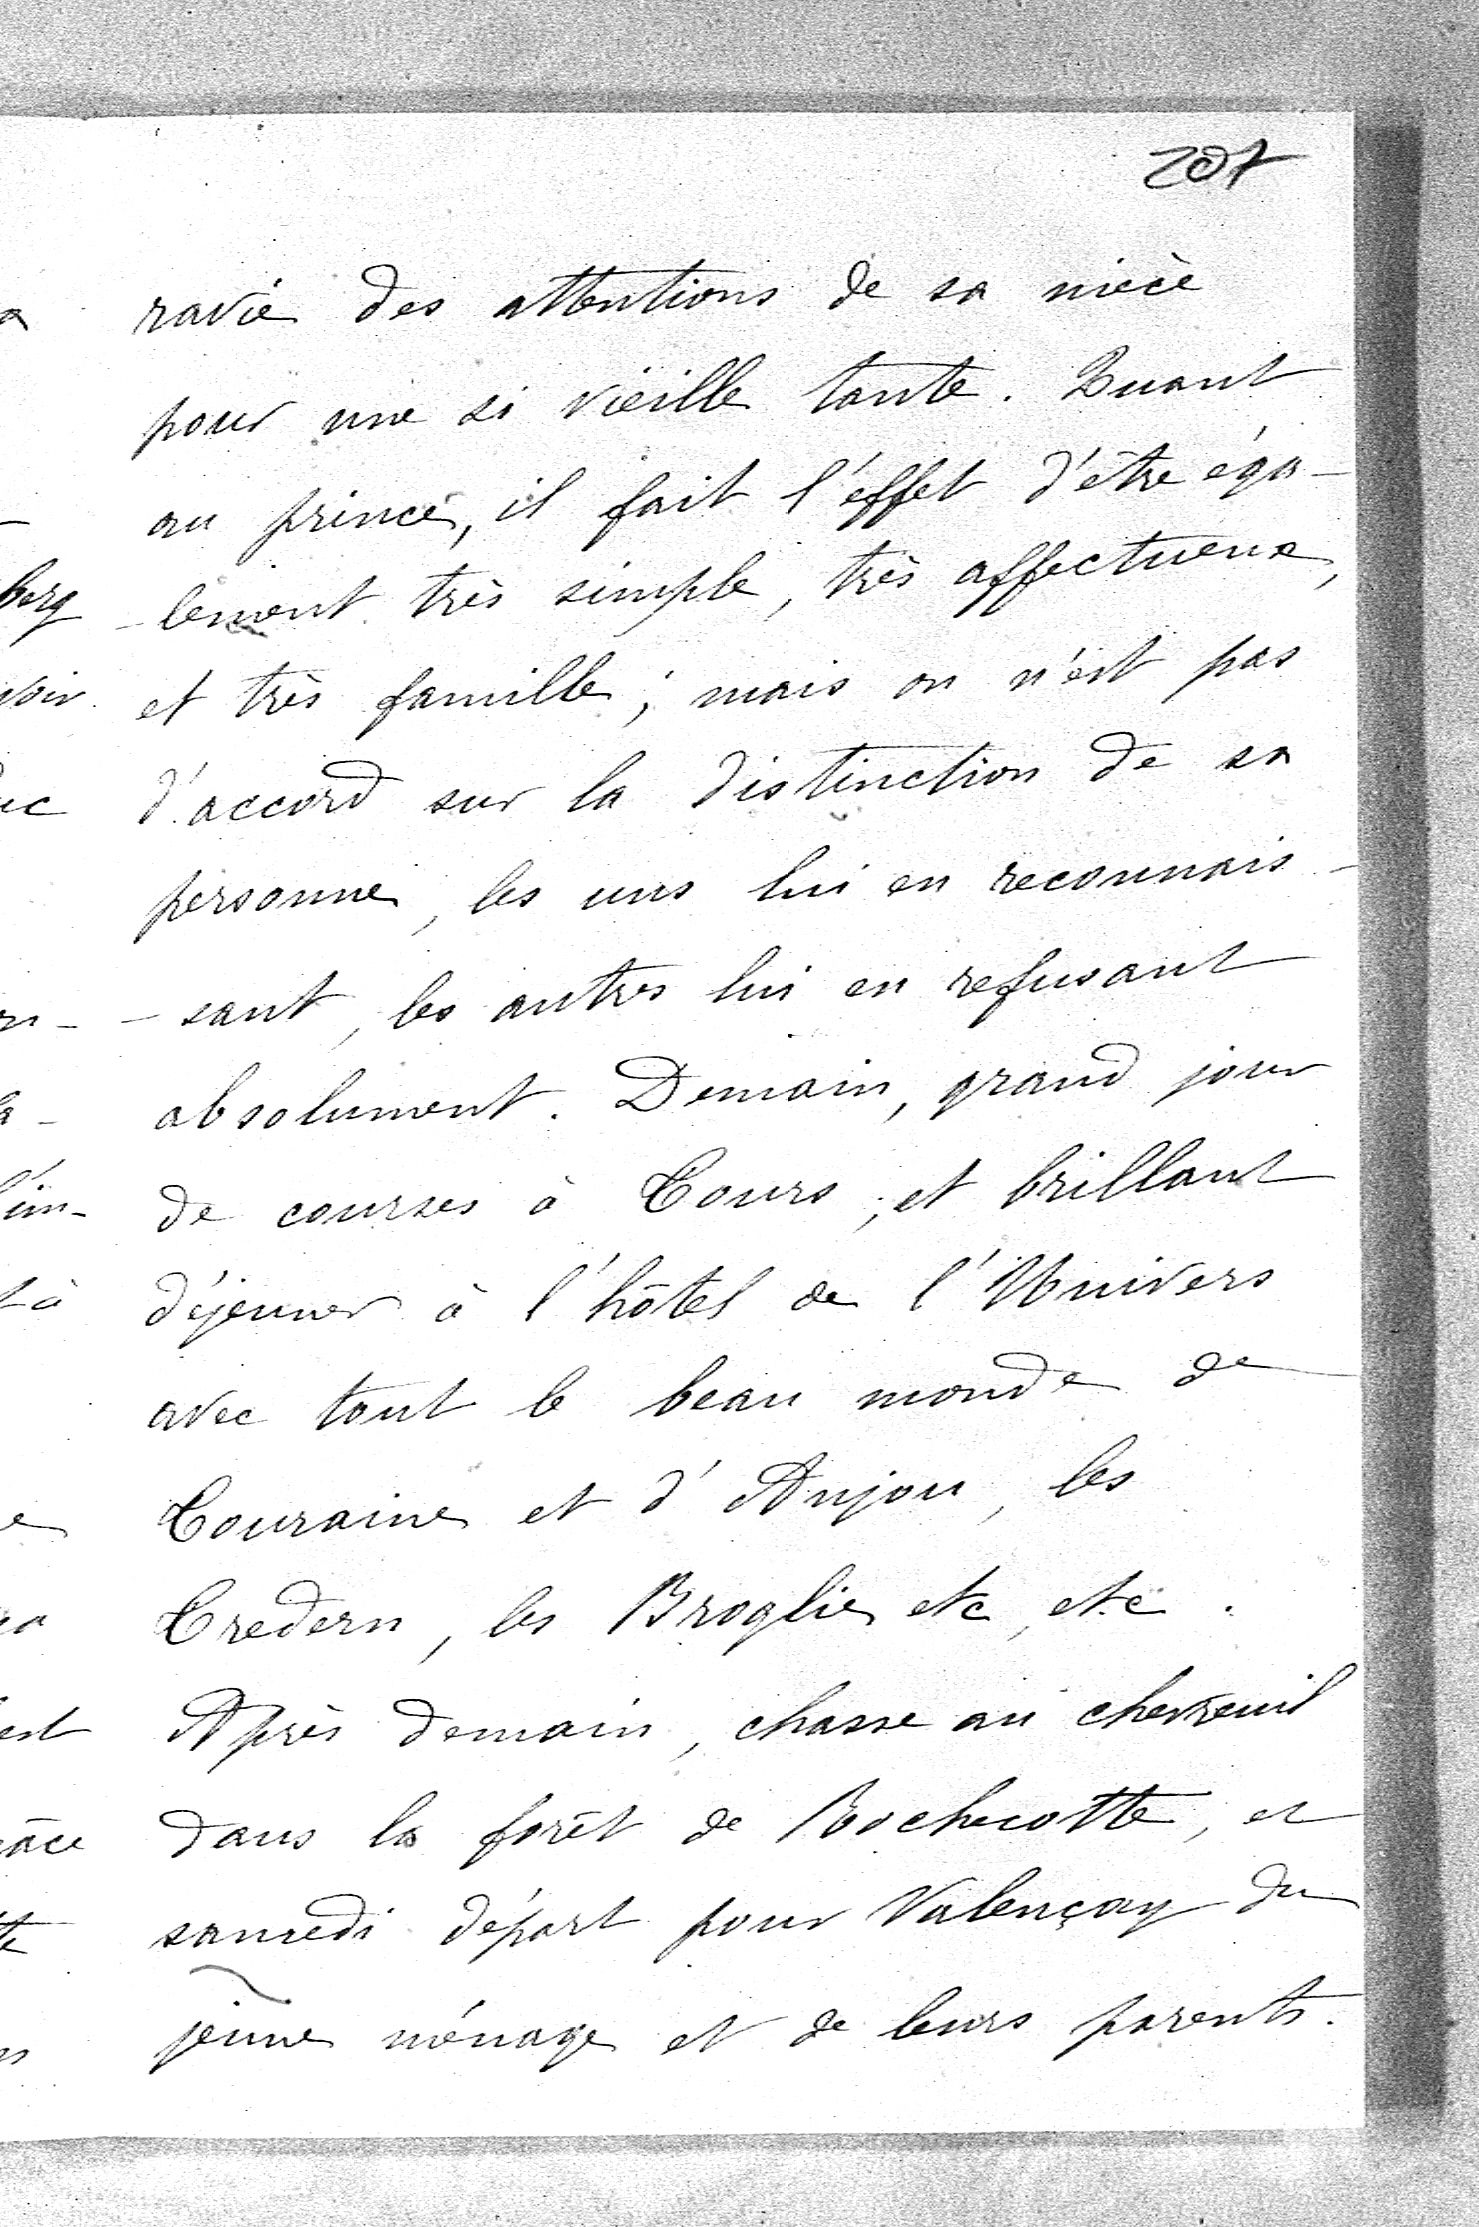 207
ravie des attentions de sa nièce
pour une si vieille tante. Quant
au prince, il fait l'effet d'être éga-
-lement très simple, très affectueux,
et très famille ; mais on n'est pas
d'accord sur la distinction de sa
personne, les uns lui en reconnais-
-sant, les autres lui en refusant
absolument. Demain, grand jour
de courses à Tours, et brillant
déjeuner à l'hôtel de l'Univers
avec tout le beau monde de
Touraine et d'Anjou, les
Tredern, les Broglie etc, etc.
Après demain, chasse au chevreuil
dans la forêt de Rochecotte, et
samedi départ pour Valençay du
jeune ménage et de leurs parents.